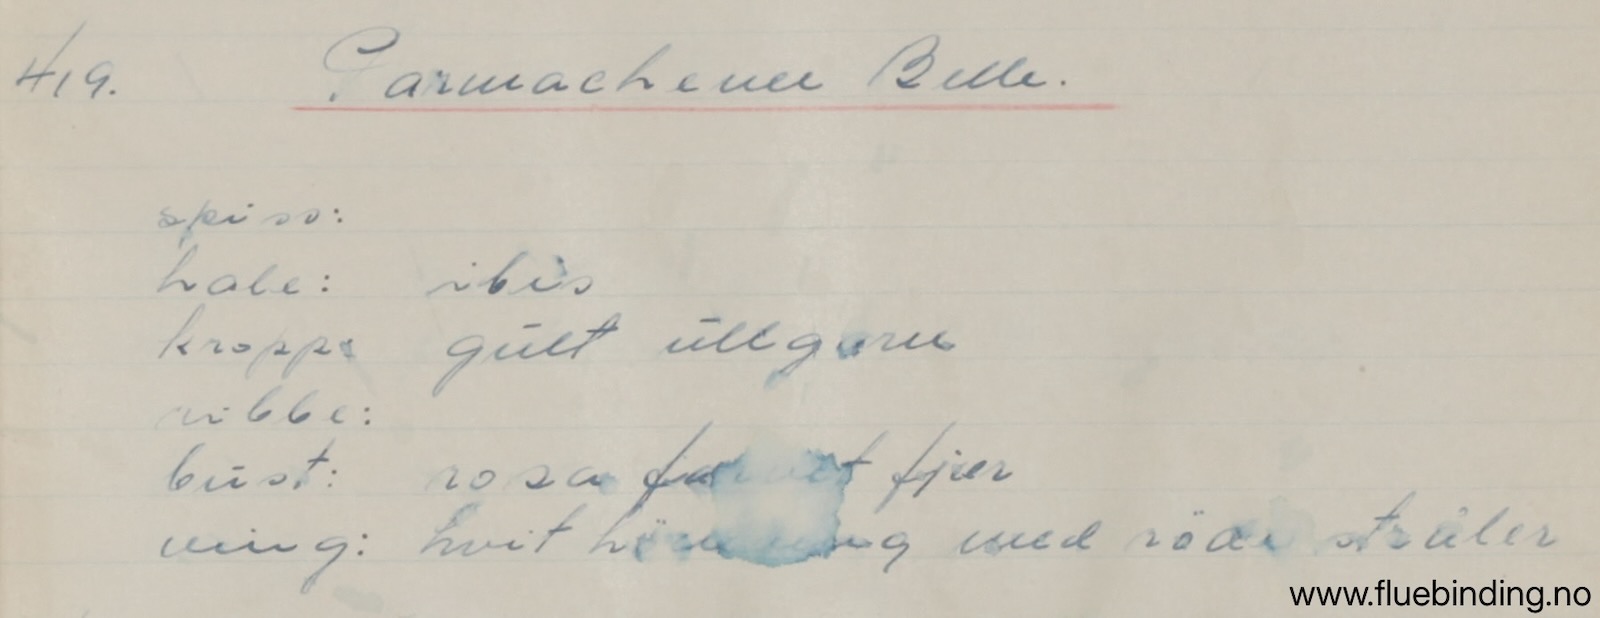 419. Parmachenee Belle.
spiss:
hale: ibis
kropp: gult ullgarn
ribbe:
bust: rosa farvet fjær
ving: hvit med röde stråler
www.fluebinding.no